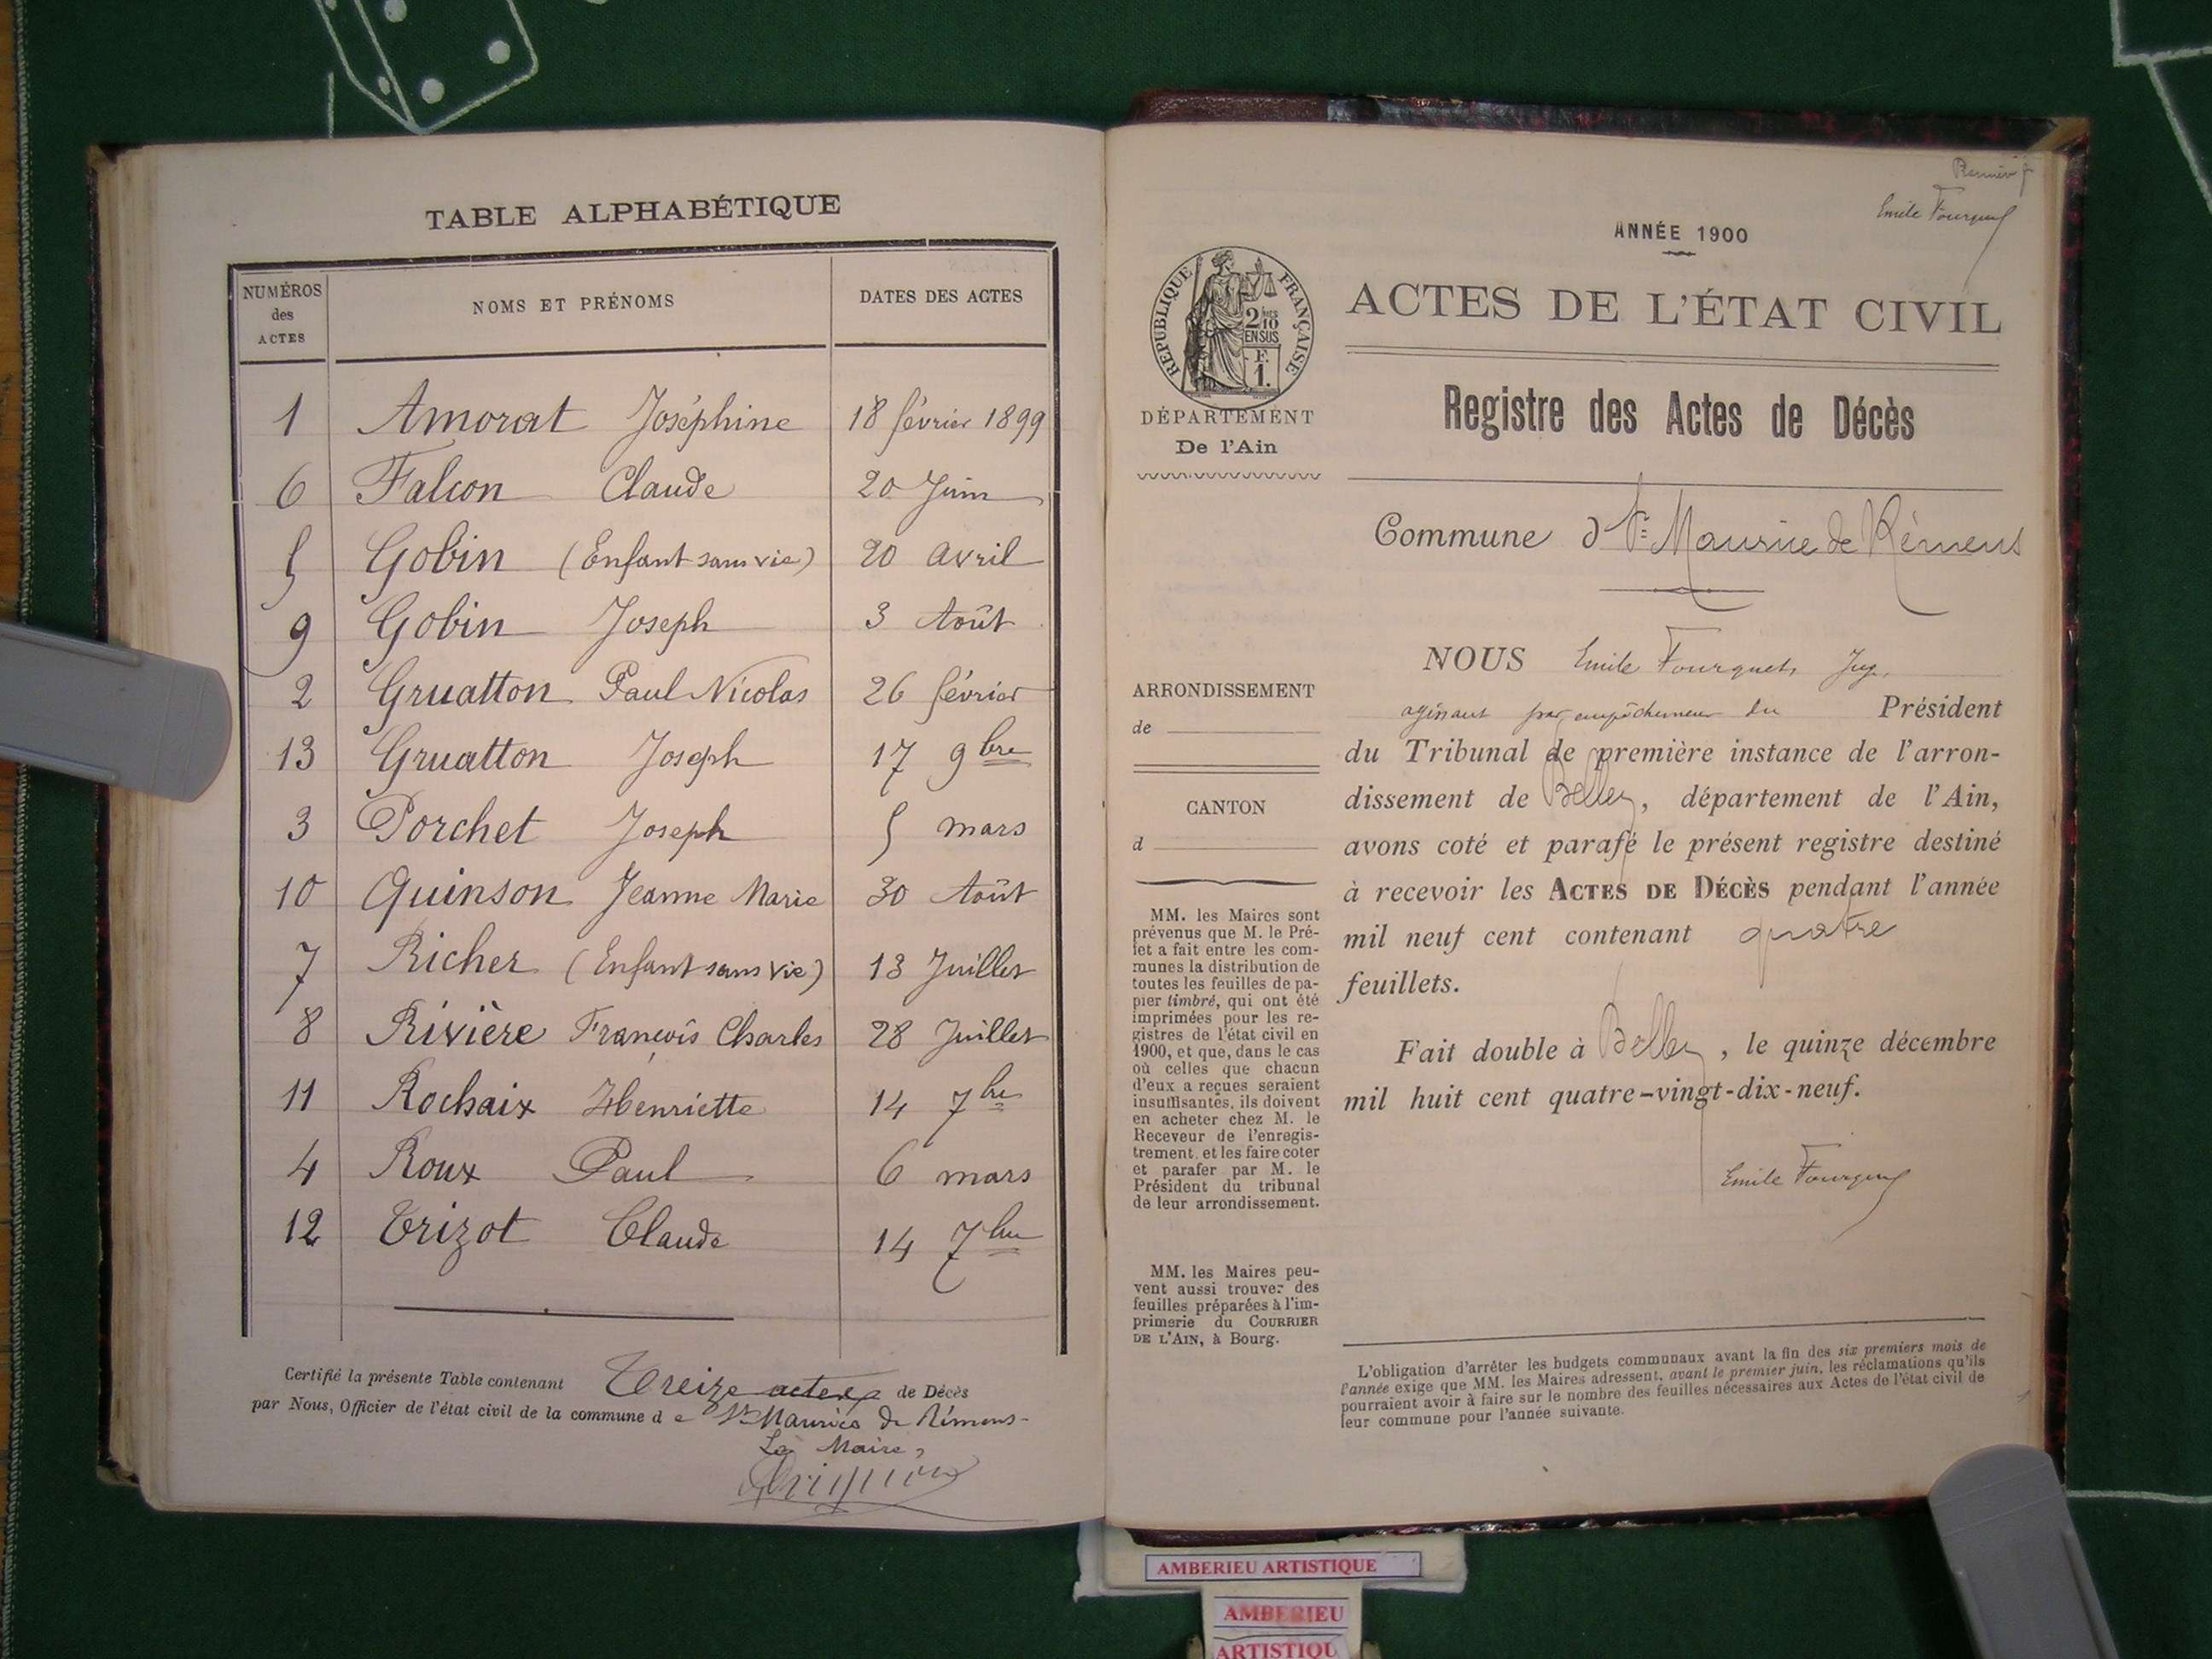 TABLE ALPHABÉTIQUE
NUMÉROS des ACTES NOMS ET PRÉNOMS DATES DES ACTES
1 Amorat Joséphine 18 février 1899
6 Falcon Claude 20 Juin
5 Gobin (Enfant sans vie) 20 avril
9 Gobin Joseph 3 Août
2 Gruatton Paul Nicolas 26 février
13 Gruatton Joseph 17 9bre
3 Porchet Joseph 5 mars
10 Quinson Jeanne Marie 30 Août
7 Richer (Enfant sans vie) 13 Juillet
8 Rivière François Charles 28 Juillet
11 Rochaix Henriette 14 7bre
4 Roux Paul 6 mars
12 Trizot Claude 14 7bre
Certifié la présente Table contenant Treize actes de Décès
par Nous, Officier de l'état civil de la commune d e St Maurice de Rémens
Le Maire,
Emile Fourquet
ANNÉE 1900
RÉPUBLIQUE FRANÇAISE
2/10 EN SUS
F. 1.
ACTES DE L'ÉTAT CIVIL
DÉPARTEMENT
De l'Ain
Registre des Actes de Décès
Commune d St Maurice de Rémens
ARRONDISSEMENT
de
CANTON
d
MM. les Maires sont
prévenus que M. le Pré-
fet a fait entre les com-
munes la distribution de
toutes les feuilles de pa-
pier timbré, qui ont été
imprimées pour les re-
gistres de l'état civil en
1900, et que, dans le cas
où celles que chacun
d'eux a reçues seraient
insuffisantes, ils doivent
en acheter chez M. le
Receveur de l'enregis-
trement, et les faire coter
et parafer par M. le
Président du tribunal
de leur arrondissement.
MM. les Maires peu-
vent aussi trouver des
feuilles préparées à l'im-
primerie du COURRIER
DE L'AIN, à Bourg.
NOUS Emile Fourquet, Juge
agissant par empêchement du Président
du Tribunal de première instance de l'arron-
dissement de Belley, département de l'Ain,
avons coté et parafé le présent registre destiné
à recevoir les ACTES DE DÉCÈS pendant l'année
mil neuf cent contenant quatre
feuillets.
Fait double à Belley, le quinze décembre
mil huit cent quatre-vingt-dix-neuf.
Emile Fourquet
L'obligation d'arrêter les budgets communaux avant la fin des six premiers mois de
l'année exige que MM. les Maires adressent, avant le premier juin, les réclamations qu'ils
pourraient avoir à faire sur le nombre des feuilles nécessaires aux Actes de l'état civil de
leur commune pour l'année suivante.
AMBERIEU ARTISTIQUE
AMBERIEU
ARTISTIQU